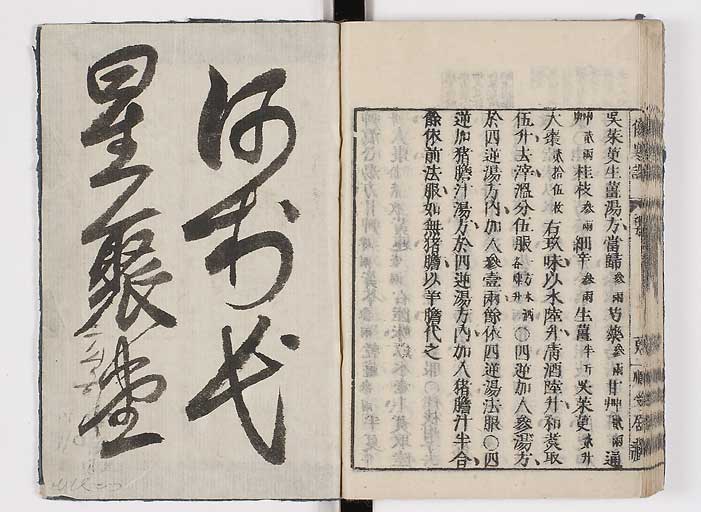 吳茱萸生薑湯方當歸參兩芍藥參兩甘艸貳兩通
艸貳兩桂枝參兩細辛參兩生薑半斤吳茱萸貳升
大棗貳拾伍枚右玖味以水陸升清酒陸升和煮取
伍升去滓溫分伍服方水酒各肆升〇四逆加人參湯方
於四逆湯方內加人參壹兩餘依四逆湯法服〇四
逆加猪膽汁湯方於四逆湯方內加入猪膽汁半合
餘依前法服如無猪膽以羊膽代之
星聚堂